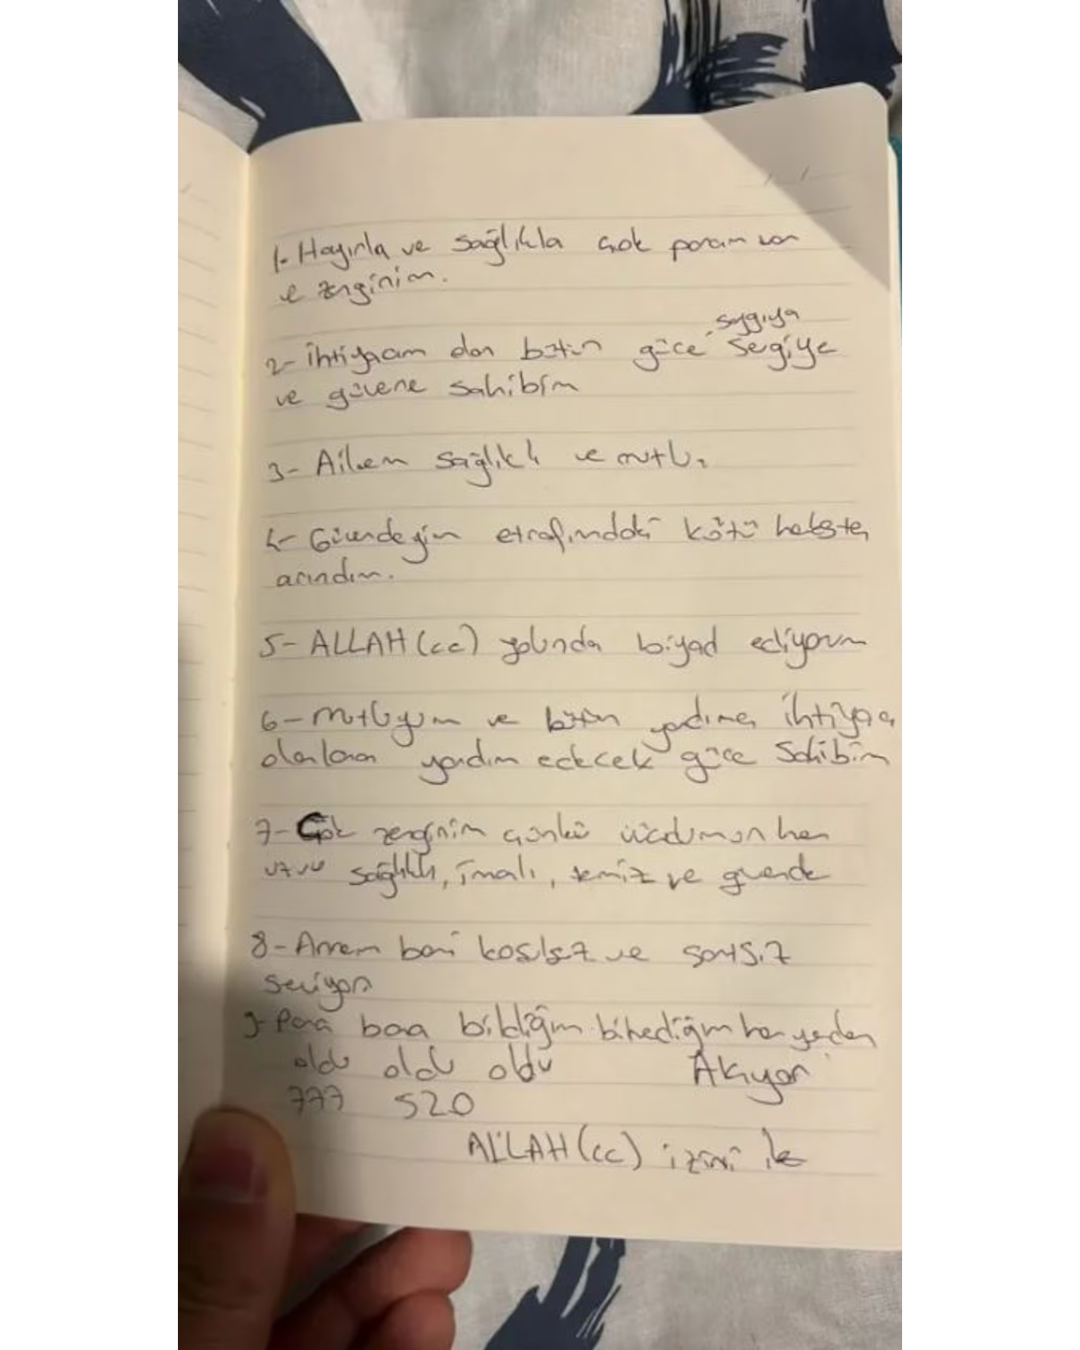 1- Hayırla ve sağlıkla çok param var
ve zenginim.
saygıya
2- ihtiyacım olan bütün güce sevgiye
ve güvene sahibim
3- Ailem sağlıklı ve mutlu
4- Güvendeyim etrafımdaki kötü
arındım.
5- ALLAH (cc) yolunda ediyorum
6- mutluyum ve bütün yardıma ihtiyacı
olanlara yardım edecek güce Sahibim
7- Çok zenginim çünkü vücudumun her
uzvu sağlıklı, imanlı, temiz ve güvende
8- Annem beni koşulsuz ve şartsız
seviyor
9- Para bana bildiğim bilmediğim her yerden
oldu oldu oldu Akıyor
777 520
ALLAH (cc) izini ile